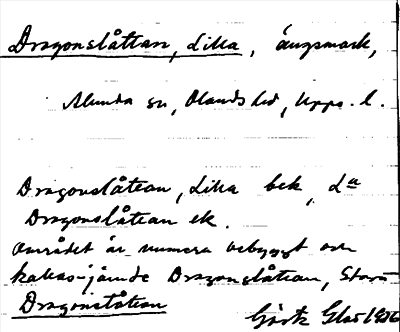 Dragonslåttan, Lilla, ängsmark,
Alunda sn, Olands hd, Upps. l.
Dragonslåttan, Lilla bek, La
Dragonslåttan ek.
Området är numera bebyggt och
kallas jämte Dragonslåttan, Stora
Dragonslåttan